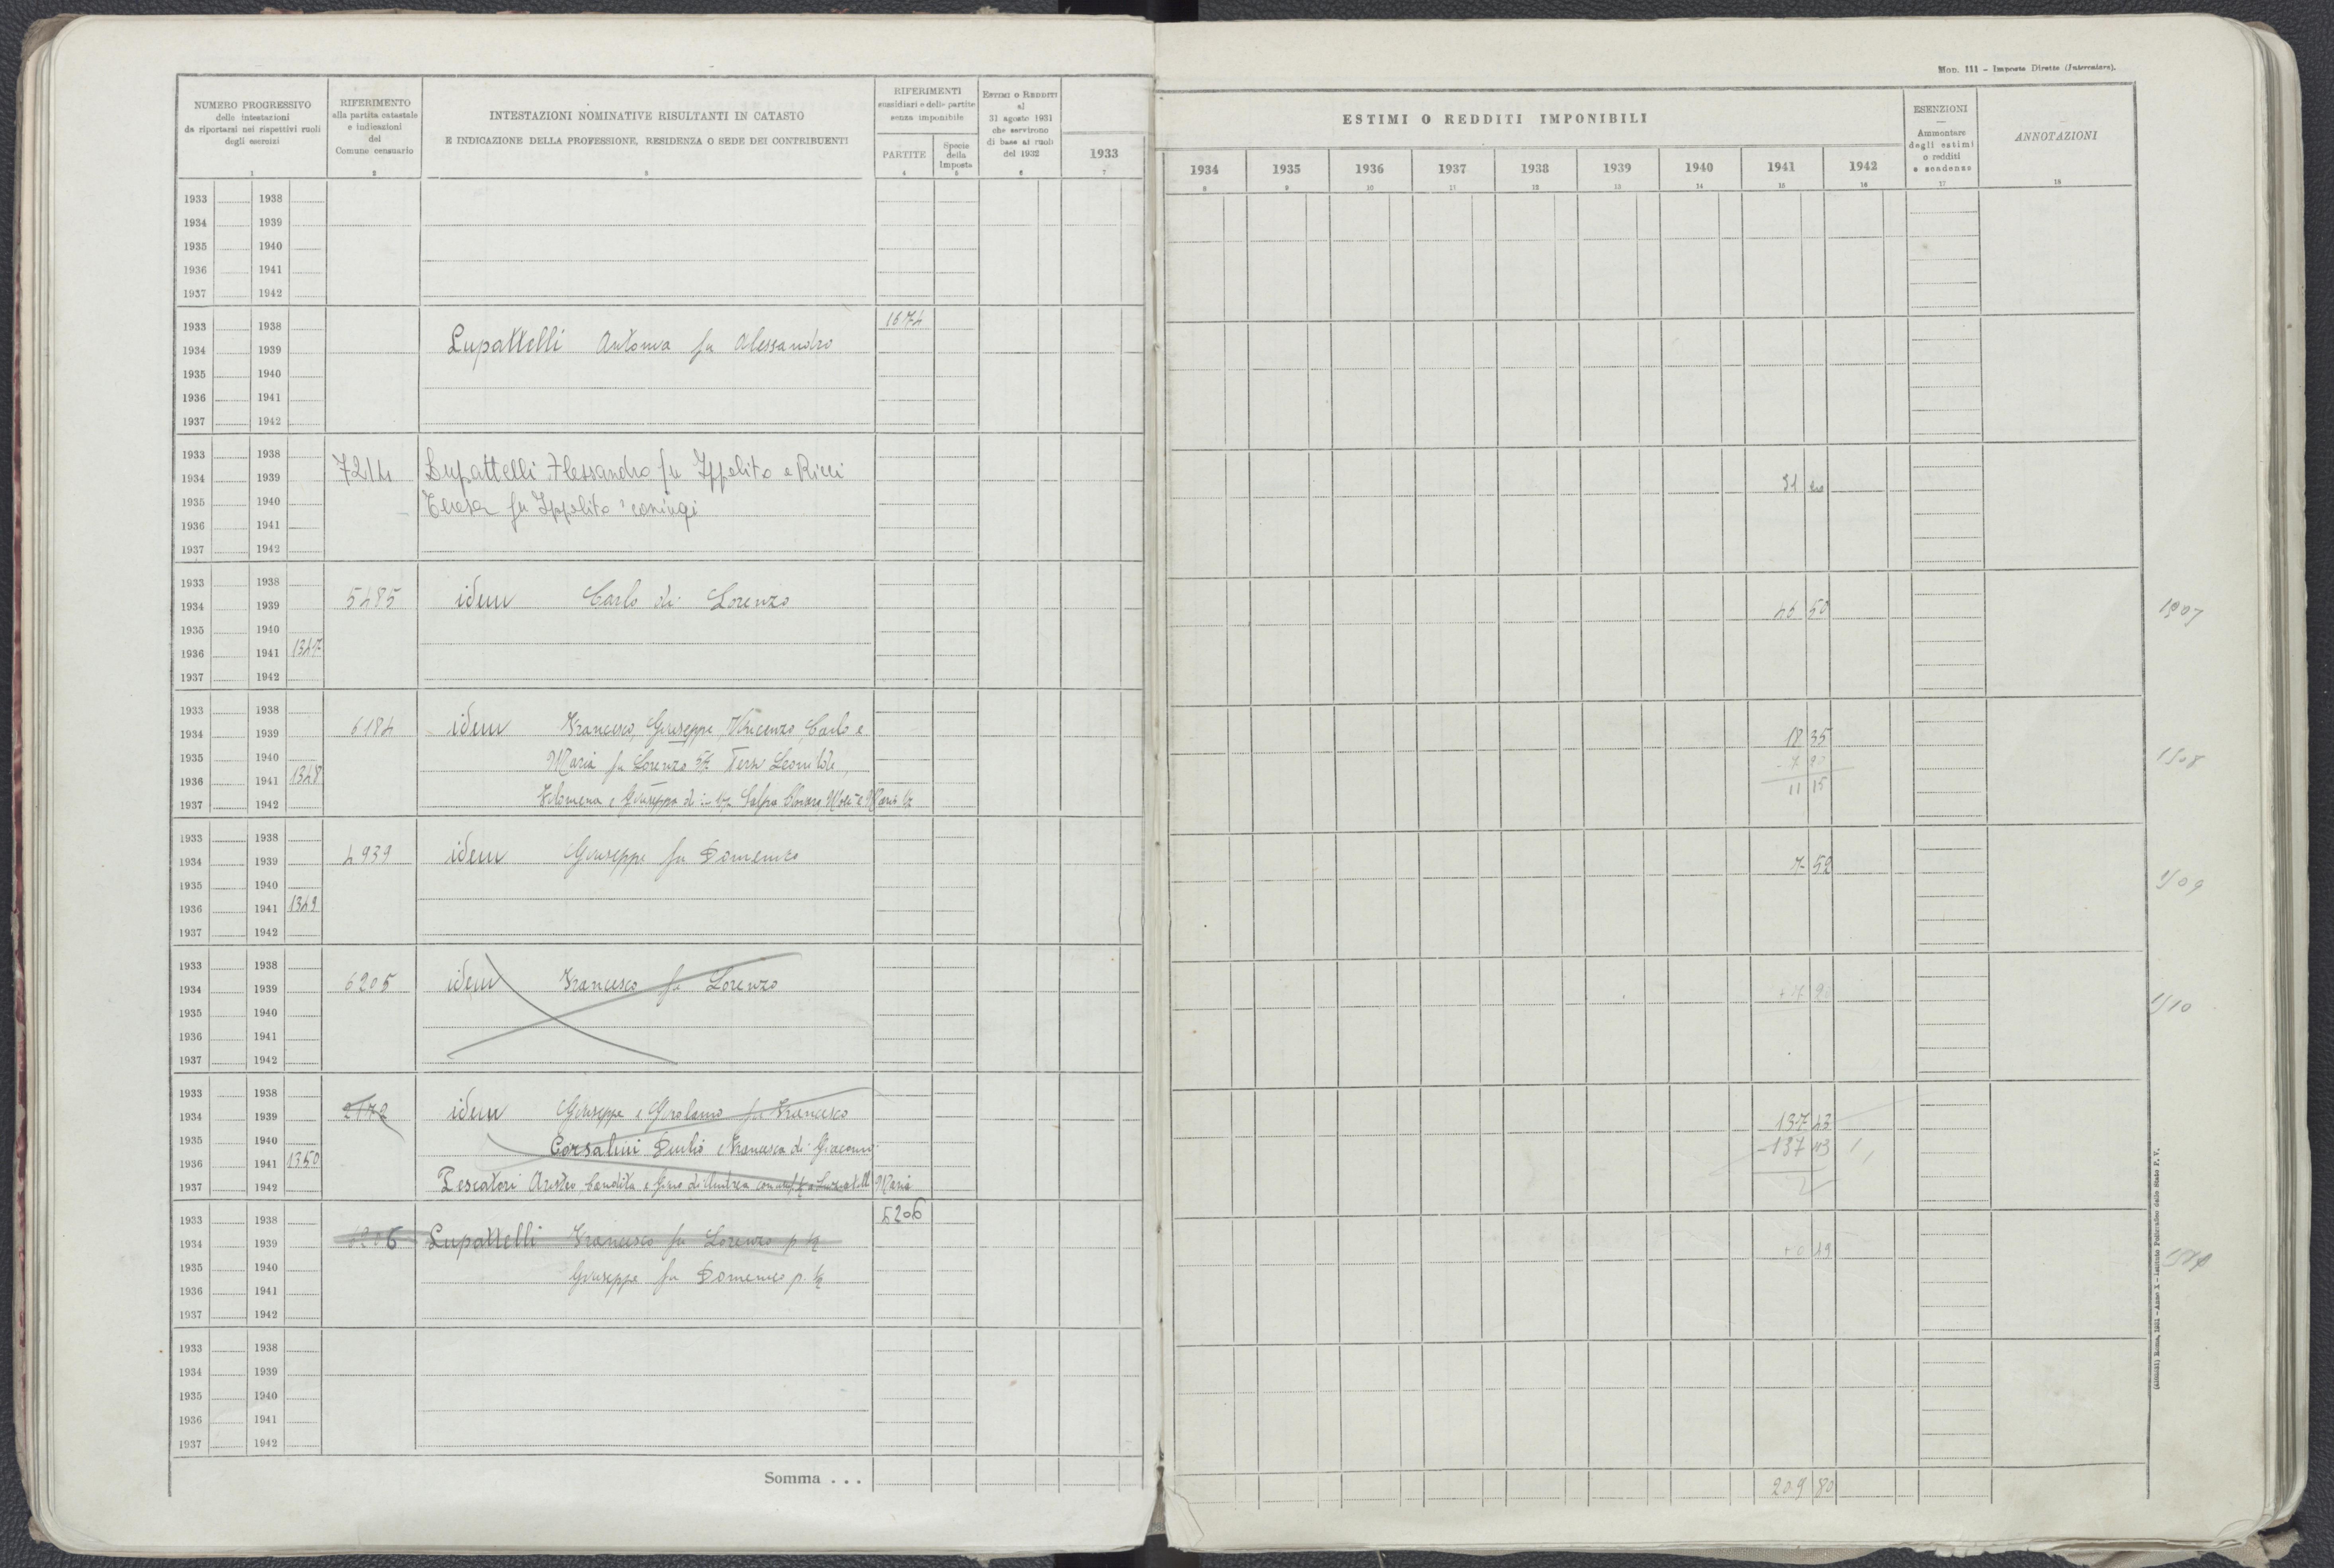 Mod. 111 - Imposte Dirette (Intercalare).
NUMERO PROGRESSIVO
delle intestazioni
da riportarsi nei rispettivi ruoli
degli esercizi
RIFERIMENTO
alla partita catastale
e indicazioni
del
Comune censuario
INTESTAZIONI NOMINATIVE RISULTANTI IN CATASTO
E INDICAZIONE DELLA PROFESSIONE, RESIDENZA O SEDE DEI CONTRIBUENTI
RIFERIMENTI
sussidiari e delle partite
senza imponibile
PARTITE
Specie
della
Imposta
ESTIMI O REDDITI
al
31 agosto 1931
che servirono
di base ai ruoli
del 1932
ESTIMI O REDDITI IMPONIBILI
1933 1934 1935 1936 1937 1938 1939 1940 1941 1942
ESENZIONI
—
Ammontare
degli estimi
o redditi
e scadenze
ANNOTAZIONI
1 2 3 4 5 6 7 8 9 10 11 12 13 14 15 16 17 18
1933 1938
1934 1939
1935 1940
1936 1941
1937 1942
1933 1938 1674
1934 1939 Lupattelli Antonia fu Alessandro
1935 1940
1936 1941
1937 1942
1933 1938
1934 1939 7214 Lupattelli Alessandro fu Ippolito e Ricci 31
1935 1940 Teresa fu Ippolito coniugi
1936 1941
1937 1942
1933 1938
1934 1939 5485 idem Carlo di Lorenzo 46 50
1935 1940
1936 1941 1347
1937 1942
1933 1938
1934 1939 6184 idem Francesco, Giuseppe, Vincenzo, Carlo e 18 35
1935 1940 Maria fu Lorenzo Leonilde,
1936 1941 1348 11 15
1937 1942 Filomena e Giuseppa di
1933 1938
1934 1939 4939 idem Giuseppe fu Domenico 7 52
1935 1940
1936 1941 1349
1937 1942
1933 1938
1934 1939 6205 idem Francesco fu Lorenzo
1935 1940
1936 1941
1937 1942
1933 1938
1934 1939 2172 idem Giuseppe e Girolamo fu Francesco 137 43
1935 1940 Corsalini Duilio e Francesca di Giacomo -137 43
1936 1941 1350
1937 1942 Pescatori Candida e Gino di Andrea Maria
1933 1938 6206
1934 1939 6206 Lupattelli Francesco fu Lorenzo p. ½ +0 49
1935 1940 Giuseppe fu Domenico p. ½
1936 1941
1937 1942
1933 1938
1934 1939
1935 1940
1936 1941
1937 1942
Somma . . . 209 80